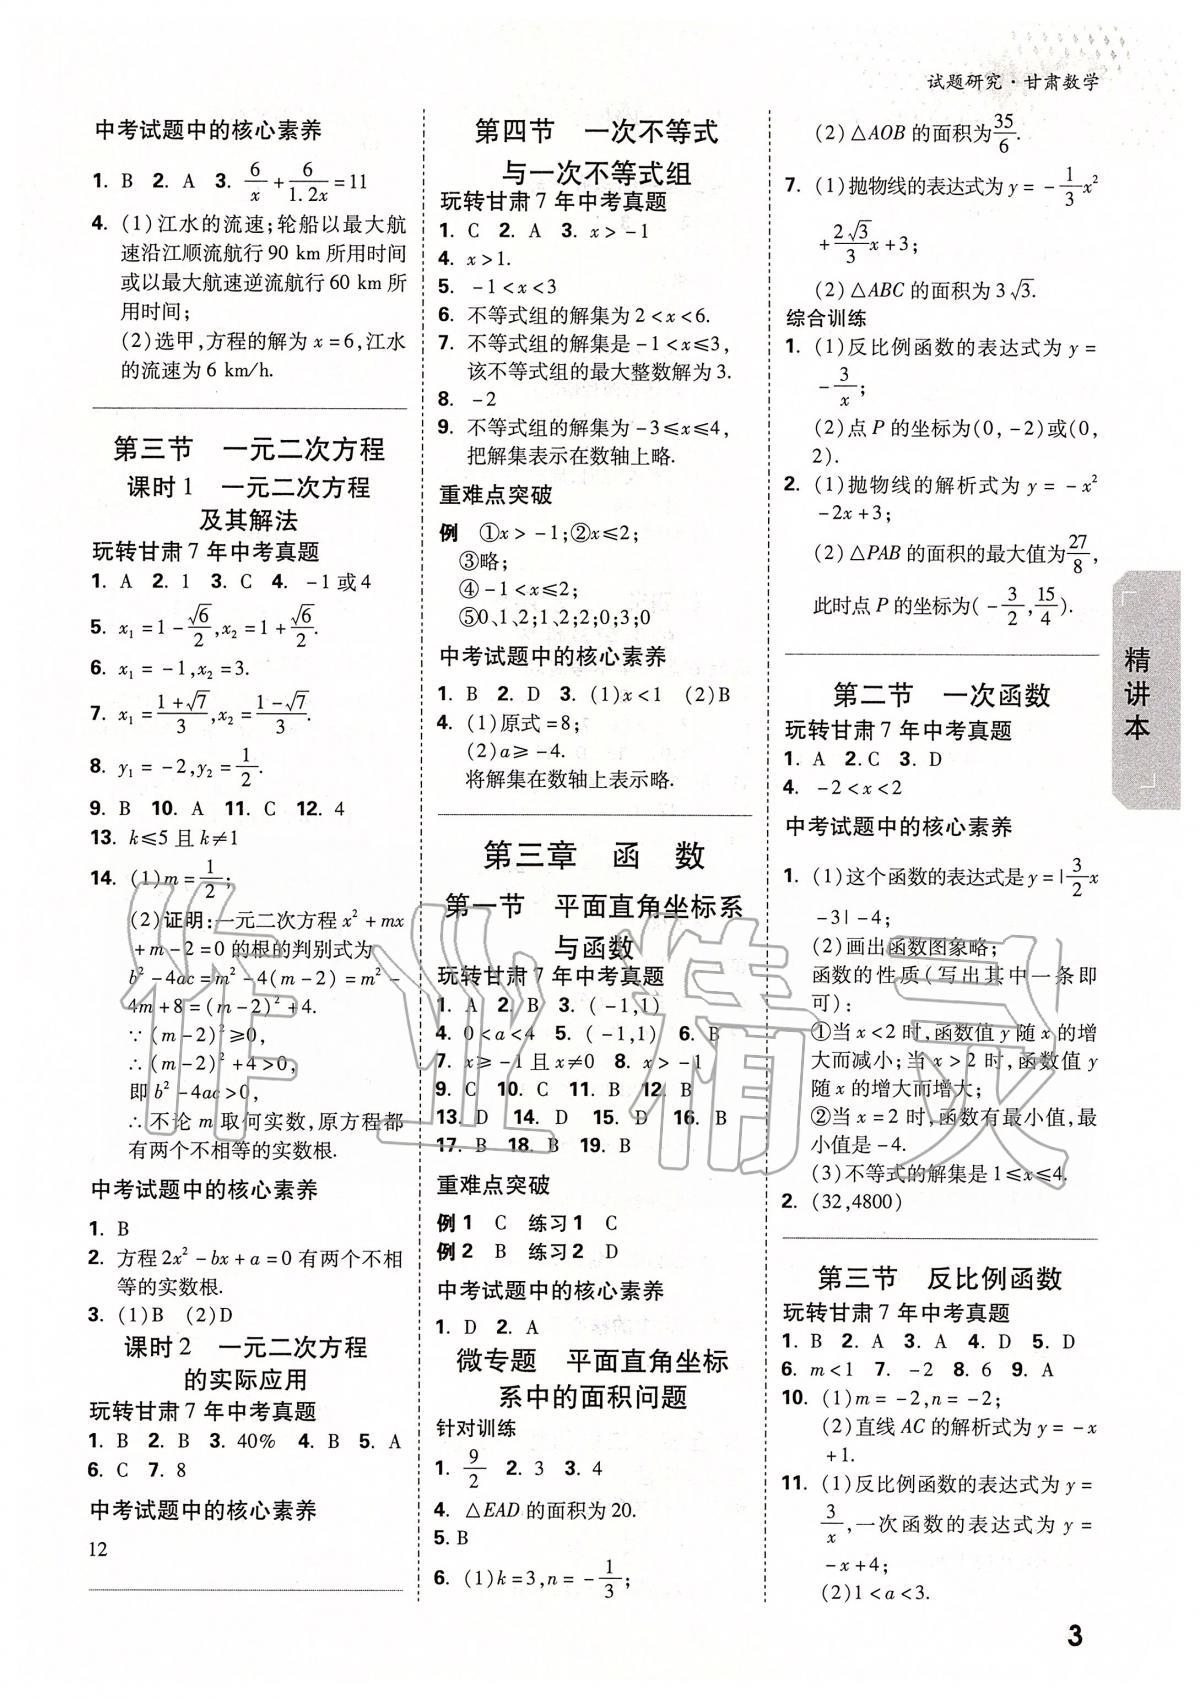 试题研究·甘肃数学
中考试题中的核心素养
1. B 2. A 3. 6/x + 6/1.2x = 11
4. (1)江水的流速;轮船以最大航
速沿江顺流航行90 km所用时间
或以最大航速逆流航行60 km所
用时间;
(2)选甲,方程的解为x=6,江水
的流速为6 km/h.
第三节 一元二次方程
课时1 一元二次方程
及其解法
玩转甘肃7年中考真题
1. A 2. 1 3. C 4. -1或4
5. x₁=1-√6/2,x₂=1+√6/2.
6. x₁=-1,x₂=3.
7. x₁=(1+√7)/3,x₂=(1-√7)/3.
8. y₁=-2,y₂=1/2.
9. B 10. A 11. C 12. 4
13. k≤5且k≠1
14. (1)m=1/2;
(2)证明:一元二次方程x²+mx
+m-2=0的根的判别式为
b²-4ac=m²-4(m-2)=m²-
4m+8=(m-2)²+4.
∵(m-2)²≥0,
∴(m-2)²+4>0,
即b²-4ac>0,
∴不论m取何实数,原方程都
有两个不相等的实数根.
中考试题中的核心素养
1. B
2. 方程2x²-bx+a=0有两个不相
等的实数根.
3. (1)B (2)D
课时2 一元二次方程
的实际应用
玩转甘肃7年中考真题
1. B 2. B 3. 40% 4. B 5. A
6. C 7. 8
中考试题中的核心素养
12
第四节 一次不等式
与一次不等式组
玩转甘肃7年中考真题
1. C 2. A 3. x>-1
4. x>1.
5. -1<x<3
6. 不等式组的解集为2<x<6.
7. 不等式组的解集是-1<x≤3,
该不等式组的最大整数解为3.
8. -2
9. 不等式组的解集为-3≤x≤4,
把解集表示在数轴上略.
重难点突破
例 ①x>-1;②x≤2;
③略;
④-1<x≤2;
⑤0、1、2;1、2;2;0;3;0
中考试题中的核心素养
1. B 2. D 3. (1)x<1 (2)B
4. (1)原式=8;
(2)a≥-4.
将解集在数轴上表示略.
第三章 函 数
第一节 平面直角坐标系
与函数
玩转甘肃7年中考真题
1. A 2. B 3. (-1,1)
4. 0<a<4 5. (-1,1) 6. B
7. x≥-1且x≠0 8. x>-1
9. C 10. C 11. B 12. B
13. D 14. D 15. D 16. B
17. B 18. B 19. B
重难点突破
例1 C 练习1 C
例2 B 练习2 D
中考试题中的核心素养
1. D 2. A
微专题 平面直角坐标
系中的面积问题
针对训练
1. 9/2 2. 3 3. 4
4. △EAD的面积为20.
5. B
6. (1)k=3,n=-1/3;
(2)△AOB的面积为35/6.
7. (1)抛物线的表达式为y=-1/3x²
+2√3/3x+3;
(2)△ABC的面积为3√3.
综合训练
1. (1)反比例函数的表达式为y=
-3/x;
(2)点P的坐标为(0,-2)或(0,
2).
2. (1)抛物线的解析式为y=-x²
-2x+3;
(2)△PAB的面积的最大值为27/8,
此时点P的坐标为(-3/2,15/4).
第二节 一次函数
玩转甘肃7年中考真题
1. A 2. C 3. D
4. -2<x<2
中考试题中的核心素养
1. (1)这个函数的表达式是y=|3/2x
-3|-4;
(2)画出函数图象略;
函数的性质(写出其中一条即
可):
①当x<2时,函数值y随x的增
大而减小;当x>2时,函数值y
随x的增大而增大;
②当x=2时,函数有最小值,最
小值是-4.
(3)不等式的解集是1≤x≤4.
2. (32,4800)
第三节 反比例函数
玩转甘肃7年中考真题
1. B 2. A 3. A 4. D 5. D
6. m<1 7. -2 8. 6 9. A
10. (1)m=-2,n=-2;
(2)直线AC的解析式为y=-x
+1.
11. (1)反比例函数的表达式为y=
3/x,一次函数的表达式为y=
-x+4;
(2)1<a<3.
精讲本
作业精灵
3